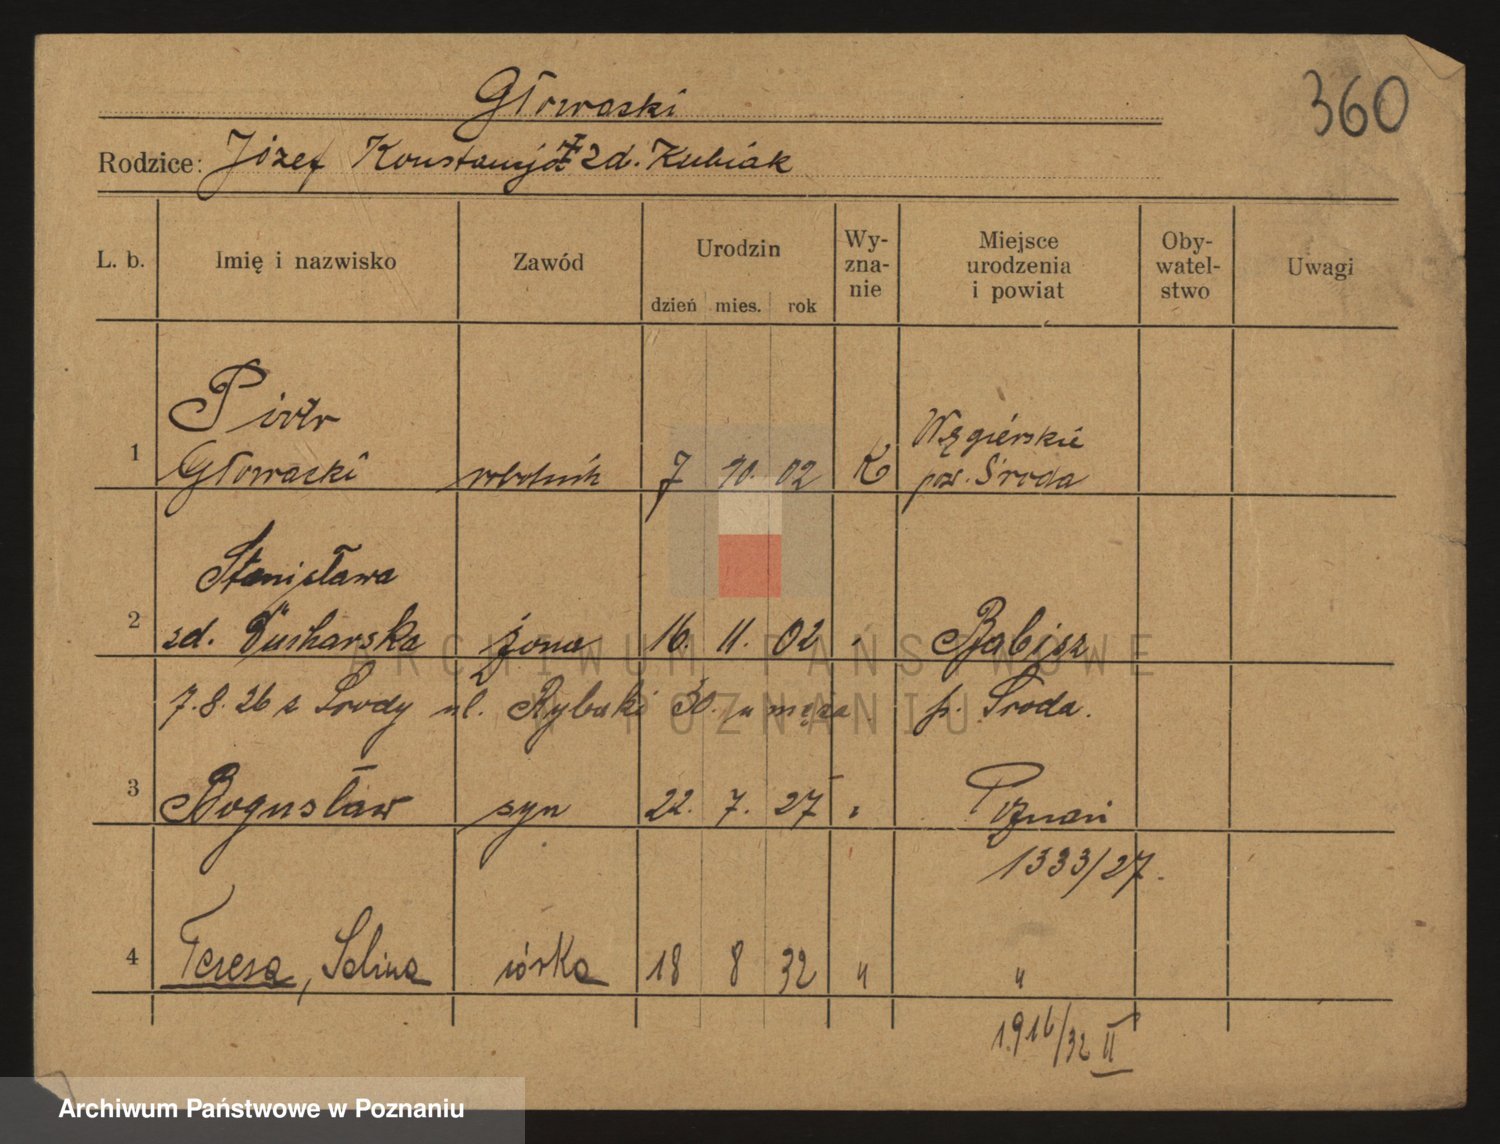 Głowacki
360
Rodzice: Józef Konstancja zd. Kubiak
L. b. Imię i nazwisko Zawód Urodzin Wy-zna-nie Miejsce urodzenia i powiat Oby-watel-stwo Uwagi
dzień mies. rok
Piotr Węgierskie
1 Głowacki robotnik 7 10. 02 K pow. Środa
Stanisława
2 zd. żona 16. 11. 02 " Babisz
7.8.26 z Środy ul. Rybaki 30. u męża. p. Środa.
3 Bogusław syn 22. 7. 27 " Poznań
1333/27.
4 Teresa, Salina córka 18 8 32 " "
1916/32 II
ARCHIWUM PAŃSTWOWE
W POZNANIU
Archiwum Państwowe w Poznaniu